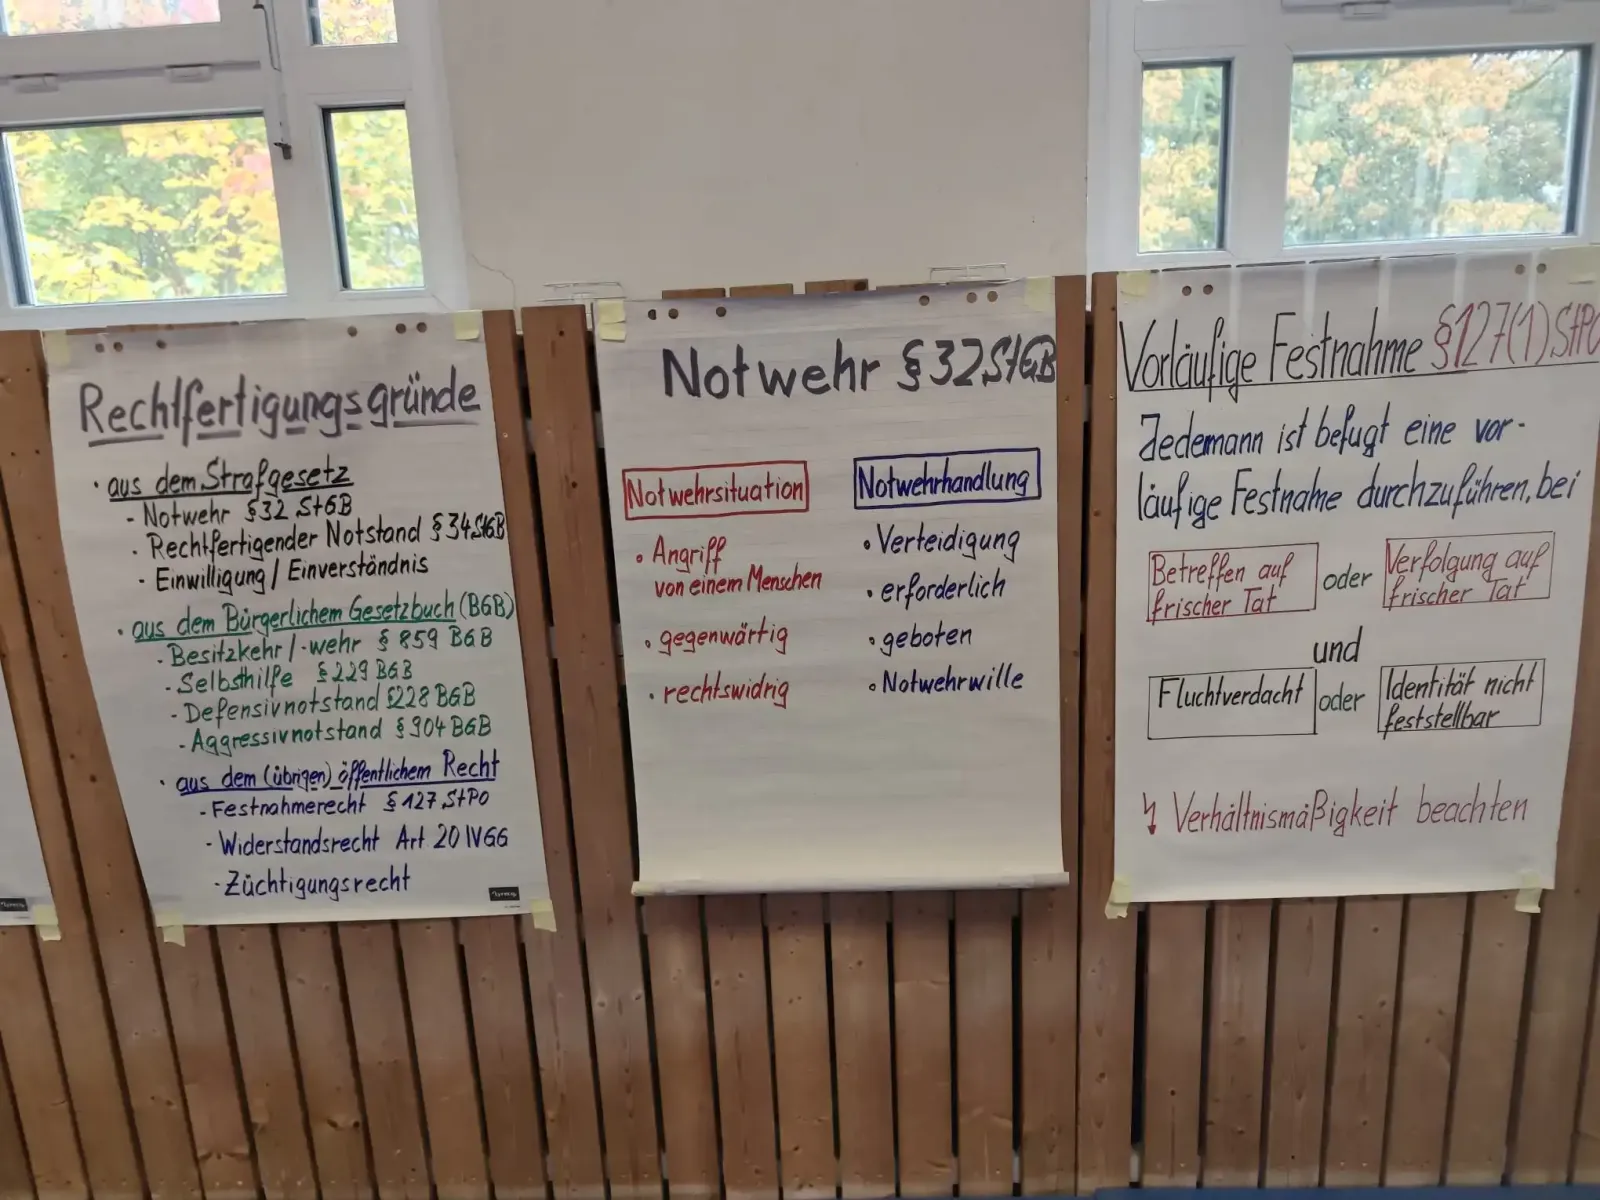 Rechtfertigungsgründe
· aus dem Strafgesetz
- Notwehr § 32 StGB
- Rechtfertigender Notstand § 34 StGB
- Einwilligung / Einverständnis
· aus dem Bürgerlichem Gesetzbuch (BGB)
- Besitzkehr / -wehr § 859 BGB
- Selbsthilfe § 229 BGB
- Defensivnotstand §228 BGB
- Aggressivnotstand § 904 BGB
· aus dem (übrigen) öffentlichem Recht
- Festnahmerecht § 127 StPO
- Widerstandsrecht Art. 20 IV GG
- Züchtigungsrecht
Notwehr § 32 StGB
Notwehrsituation
• Angriff
von einem Menschen
• gegenwärtig
• rechtswidrig
Notwehrhandlung
• Verteidigung
• erforderlich
• geboten
• Notwehrwille
Vorläufige Festnahme § 127 (1) StPO
Jedemann ist befugt eine vor-
läufige Festnahme durchzuführen, bei
Betreffen auf
frischer Tat
oder
Verfolgung auf
frischer Tat
und
Fluchtverdacht
oder
Identität nicht
feststellbar
Verhältnismäßigkeit beachten